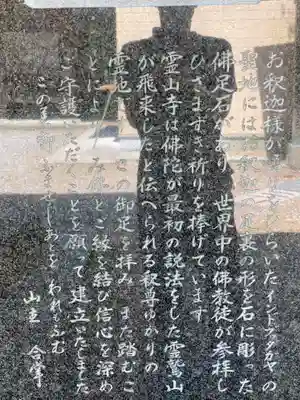 お釈迦様がひらいたインドブダガヤの
聖地にはお釈迦様の足の形を石に彫った
佛足石があり 世界中の佛教徒が参拝し
ひざまずき祈りを捧げています
霊山寺は佛陀が最初の説法をした霊鷲山
が飛来したと伝へられる釈尊ゆかりの
霊地 この御足を拝み また踏むこ
とによ み佛とご縁を結び信心を深め
ご守護いただくことを願って建立いたしました
この
山主 合掌